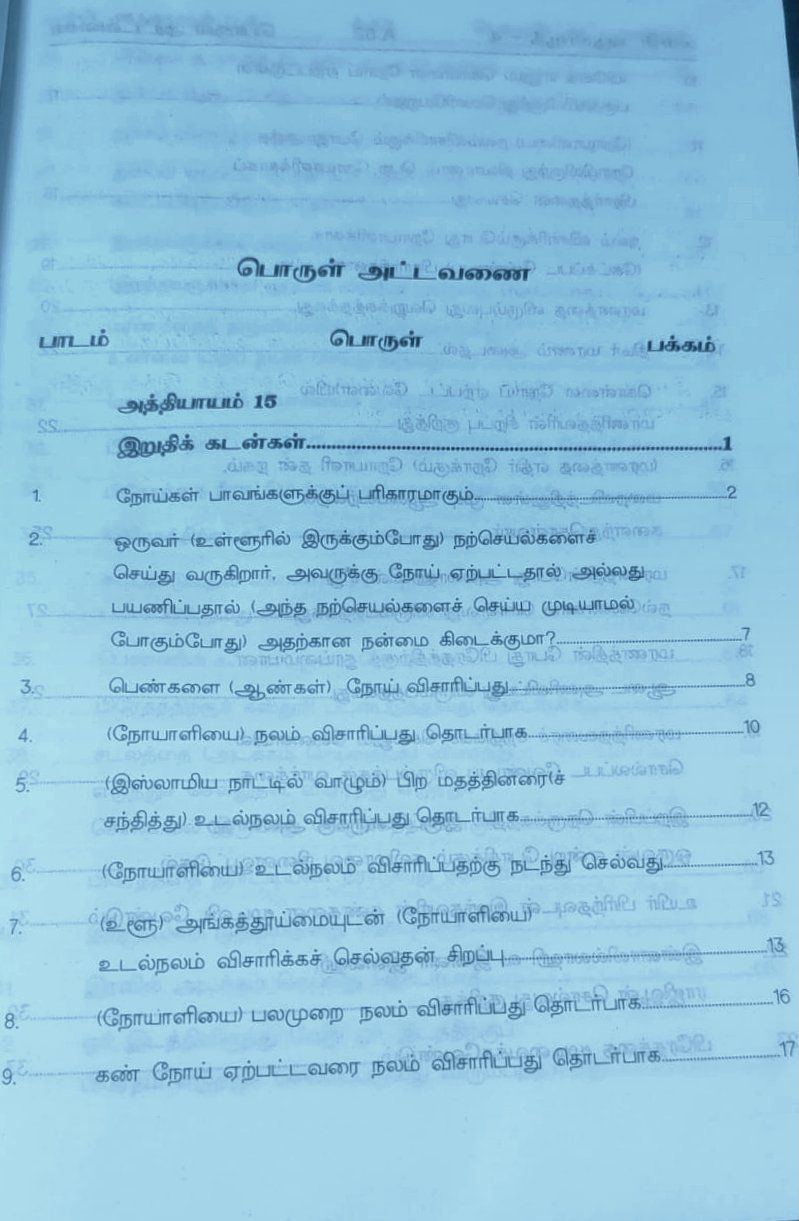 பொருள் அட்டவணை
பாடம் பொருள் பக்கம்
அத்தியாயம் 15
இறுதிக் கடன்கள்..........1
1. நோய்கள் பாவங்களுக்குப் பரிகாரமாகும்..........2
2. ஒருவர் (உள்ளூரில் இருக்கும்போது) நற்செயல்களைச்
செய்து வருகிறார், அவருக்கு நோய் ஏற்பட்டதால் அல்லது
பயணிப்பதால் (அந்த நற்செயல்களைச் செய்ய முடியாமல்
போகும்போது) அதற்கான நன்மை கிடைக்குமா?..........7
3. பெண்களை (ஆண்கள்) நோய் விசாரிப்பது..........8
4. (நோயாளியை) நலம் விசாரிப்பது தொடர்பாக..........10
5. (இஸ்லாமிய நாட்டில் வாழும்) பிற மதத்தினரை(ச்
சந்தித்து) உடல்நலம் விசாரிப்பது தொடர்பாக..........12
6. (நோயாளியை) உடல்நலம் விசாரிப்பதற்கு நடந்து செல்வது..........13
7. (உளூ) அங்கத்தூய்மையுடன் (நோயாளியை)
உடல்நலம் விசாரிக்கச் செல்வதன் சிறப்பு..........13
8. (நோயாளியை) பலமுறை நலம் விசாரிப்பது தொடர்பாக..........16
9. கண் நோய் ஏற்பட்டவரை நலம் விசாரிப்பது தொடர்பாக..........17